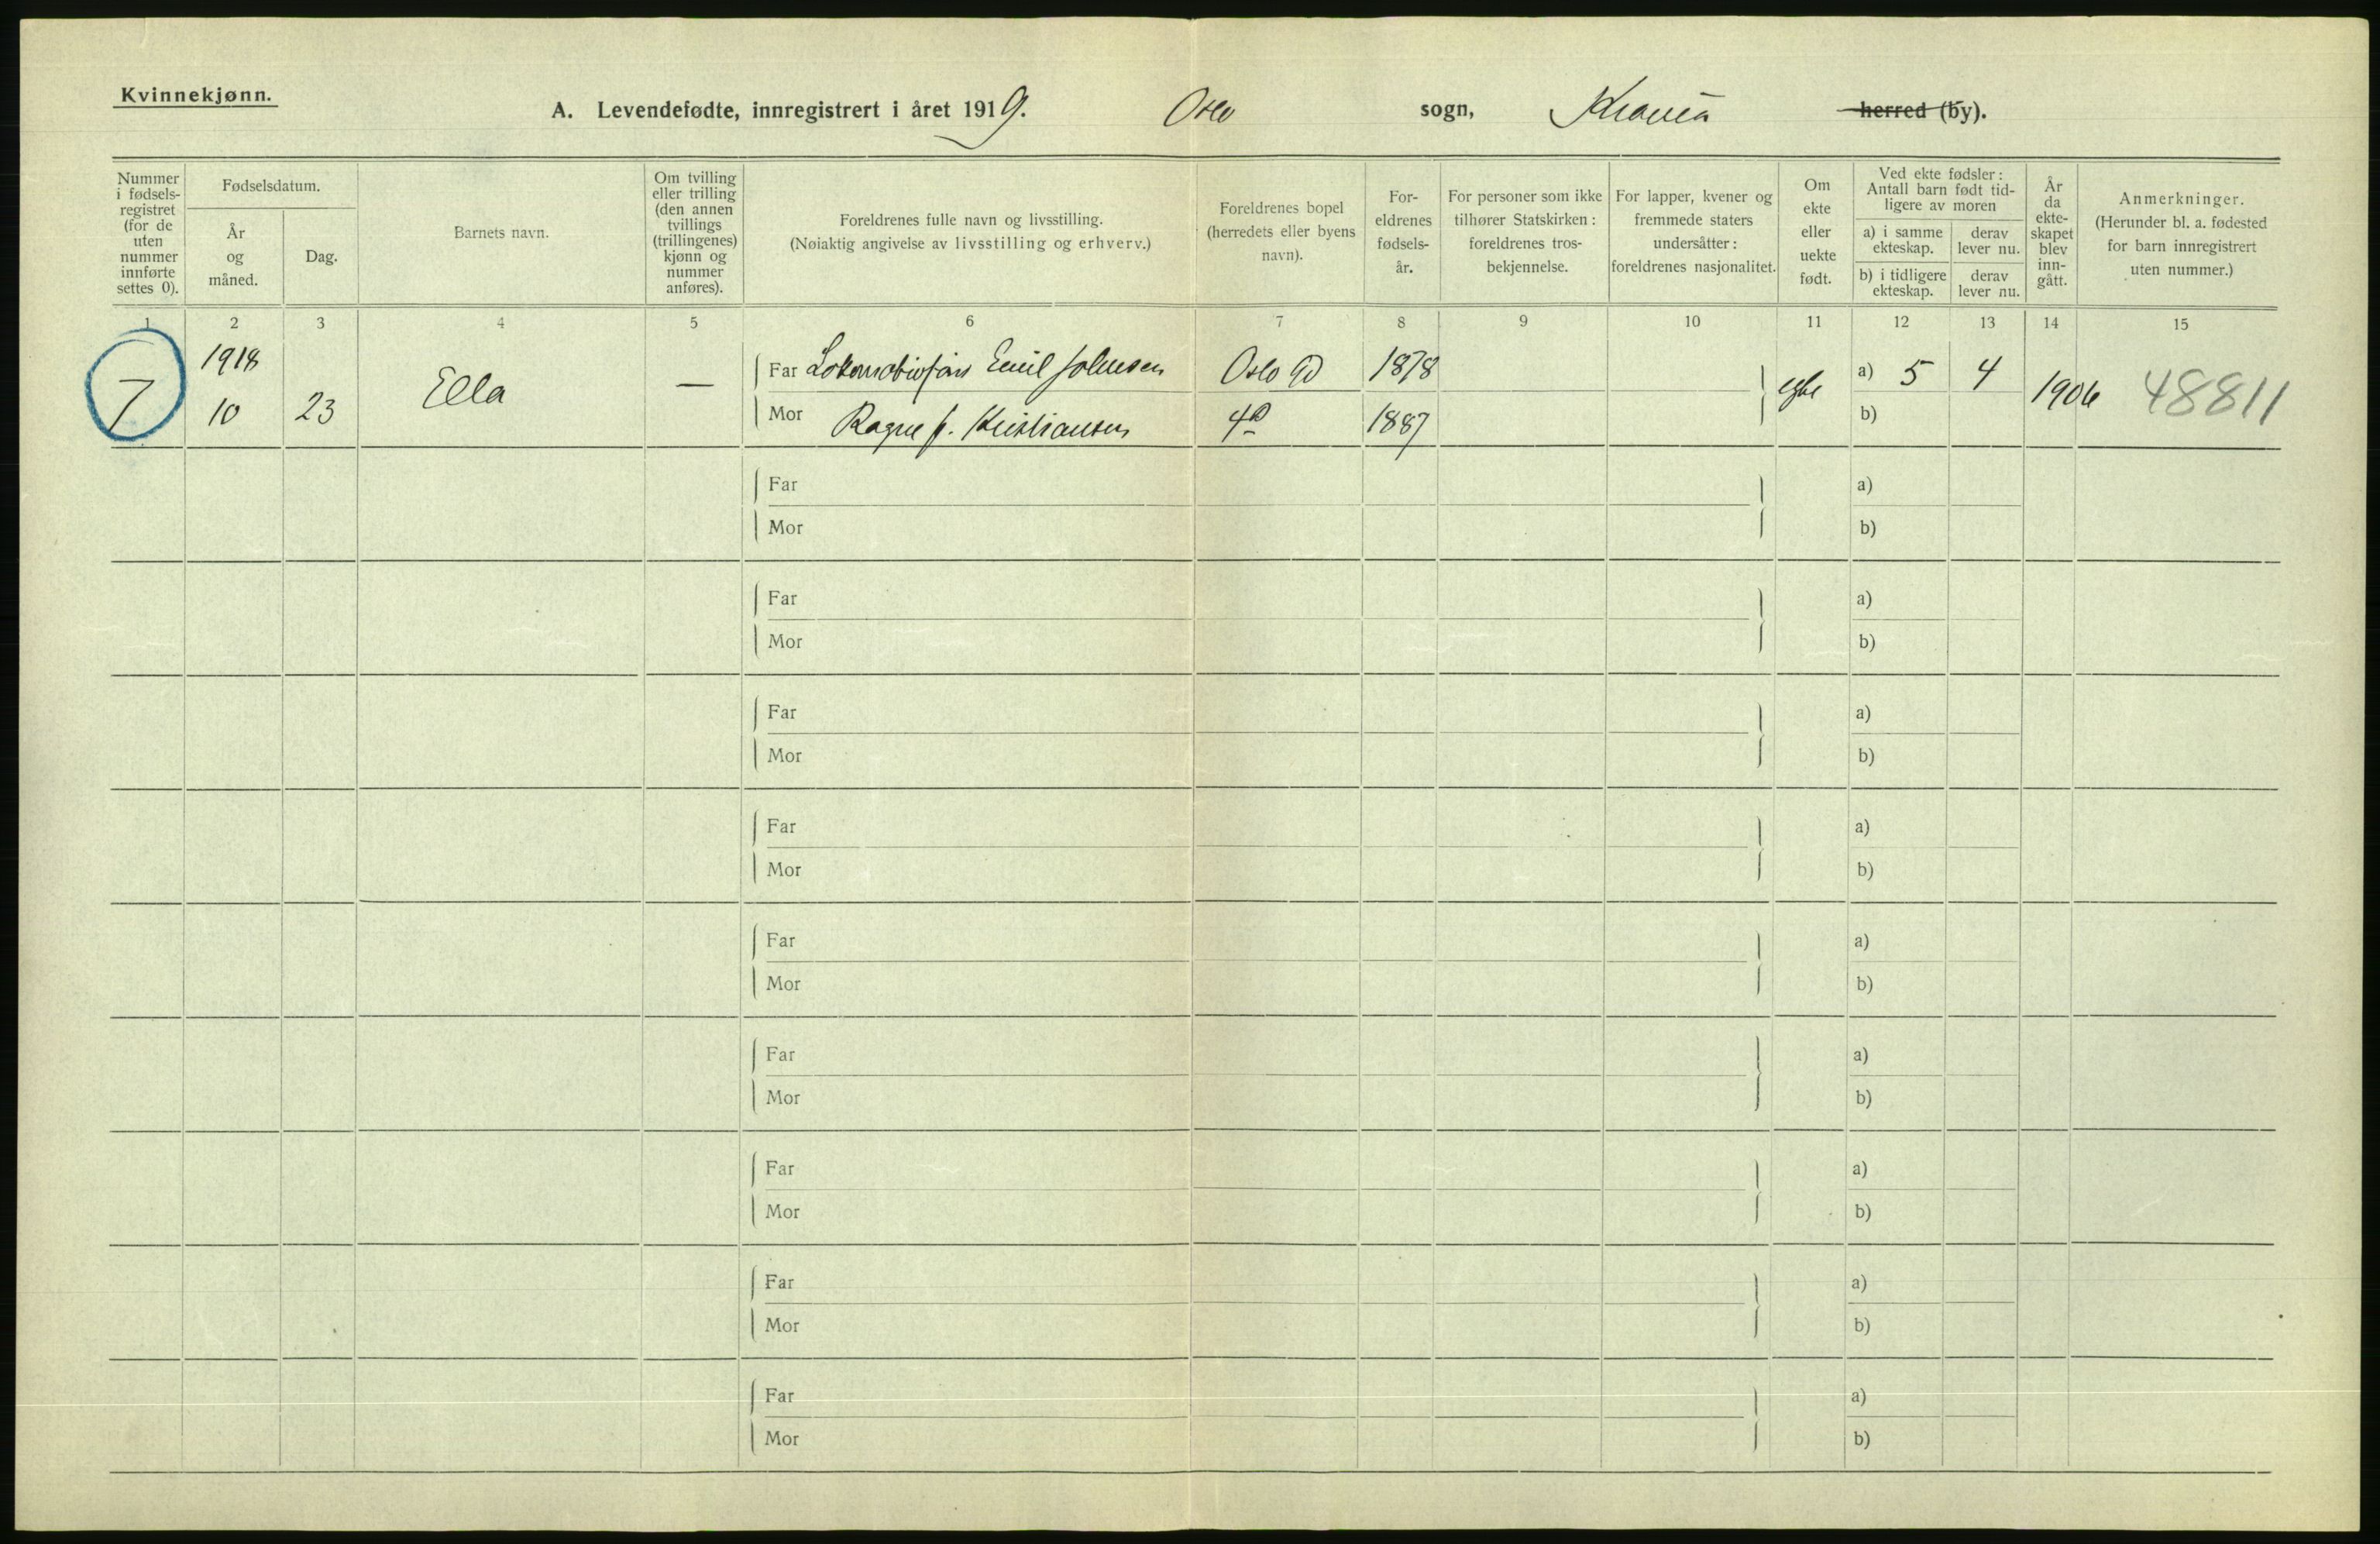 Kvinnekjønn.
A. Levendefødte, innregistrert i året 1919. Oslo sogn, Krania herred (by).
Nummer i fødsels-registret (for de uten nummer innførte settes 0).
Fødselsdatum.
År og måned.
Dag.
Barnets navn.
Om tvilling eller trilling (den annen tvillings (trillingenes) kjønn og nummer anføres).
Foreldrenes fulle navn og livsstilling.
(Nøiaktig angivelse av livsstilling og erhverv.)
Foreldrenes bopel (herredets eller byens navn).
For-eldrenes fødsels-år.
For personer som ikke tilhører Statskirken: foreldrenes tros-bekjennelse.
For lapper, kvener og fremmede staters undersåtter: foreldrenes nasjonalitet.
Om ekte eller uekte født.
Ved ekte fødsler: Antall barn født tid-ligere av moren
a) i samme ekteskap.
derav lever nu.
b) i tidligere ekteskap.
derav lever nu.
År da ekte-skapet blev inn-gått.
Anmerkninger.
(Herunder bl. a. fødested for barn innregistrert uten nummer.)
1 2 3 4 5 6 7 8 9 10 11 12 13 14 15
7 1918 10 23 Ella —
Far Emil Johnsen Oslo 1878
Mor Ragne f. Kristiansen 1887
a) 5 4
b)
1906 48811
Far a)
Mor b)
Far a)
Mor b)
Far a)
Mor b)
Far a)
Mor b)
Far a)
Mor b)
Far a)
Mor b)
Far a)
Mor b)
Far a)
Mor b)
Far a)
Mor b)